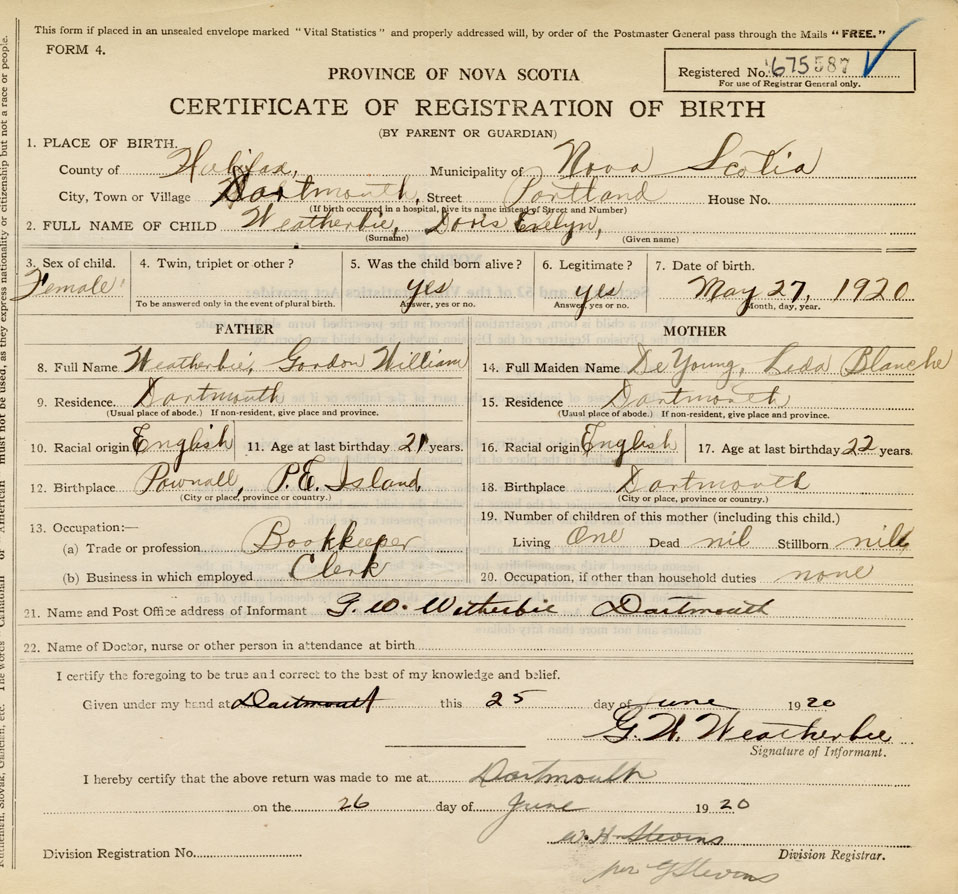 This form if placed in an unsealed envelope marked "Vital Statistics" and properly addressed will, by order of the Postmaster General pass through the Mails "FREE."
FORM 4.
Registered No. 675587
For use of Registrar General only.
PROVINCE OF NOVA SCOTIA
CERTIFICATE OF REGISTRATION OF BIRTH
(BY PARENT OR GUARDIAN)
1. PLACE OF BIRTH.
County of Halifax, Municipality of Nova Scotia
City, Town or Village Dartmouth, Street Portland House No.
(If birth occurred in a hospital, give its name instead of Street and Number)
2. FULL NAME OF CHILD Weatherbie, Doris Evelyn,
(Surname) (Given name)
3. Sex of child. Female
4. Twin, triplet or other?
To be answered only in the event of plural birth.
5. Was the child born alive? yes
Answer, yes or no.
6. Legitimate? yes
Answer, yes or no.
7. Date of birth. May 27, 1920
Month, day, year.
FATHER
8. Full Name Weatherbie, Gordon William
9. Residence. Dartmouth
(Usual place of abode.) If non-resident, give place and province.
10. Racial origin English 11. Age at last birthday 21 years.
12. Birthplace Pownall, P.E. Island,
(City or place, province or country.)
13. Occupation:—
(a) Trade or profession Bookkeeper
(b) Business in which employed Clerk
MOTHER
14. Full Maiden Name DeYoung, Leda Blanche
15. Residence Dartmouth
(Usual place of abode.) If non-resident, give place and province.
16. Racial origin English 17. Age at last birthday 22 years.
18. Birthplace Dartmouth
(City or place, province or country.)
19. Number of children of this mother (including this child.)
Living One Dead nil Stillborn nil
20. Occupation, if other than household duties none
21. Name and Post Office address of Informant G. W. Witherbie Dartmouth
22. Name of Doctor, nurse or other person in attendance at birth
I certify the foregoing to be true and correct to the best of my knowledge and belief.
Given under my hand at Dartmouth this 25 day of June 1920
G. W. Weatherbie
Signature of Informant.
I hereby certify that the above return was made to me at Dartmouth
on the 26 day of June 1920
W. H. Stevens
per G Stevens
Division Registration No. Division Registrar.
must not be used, as they express nationality or citizenship but not a race or people.